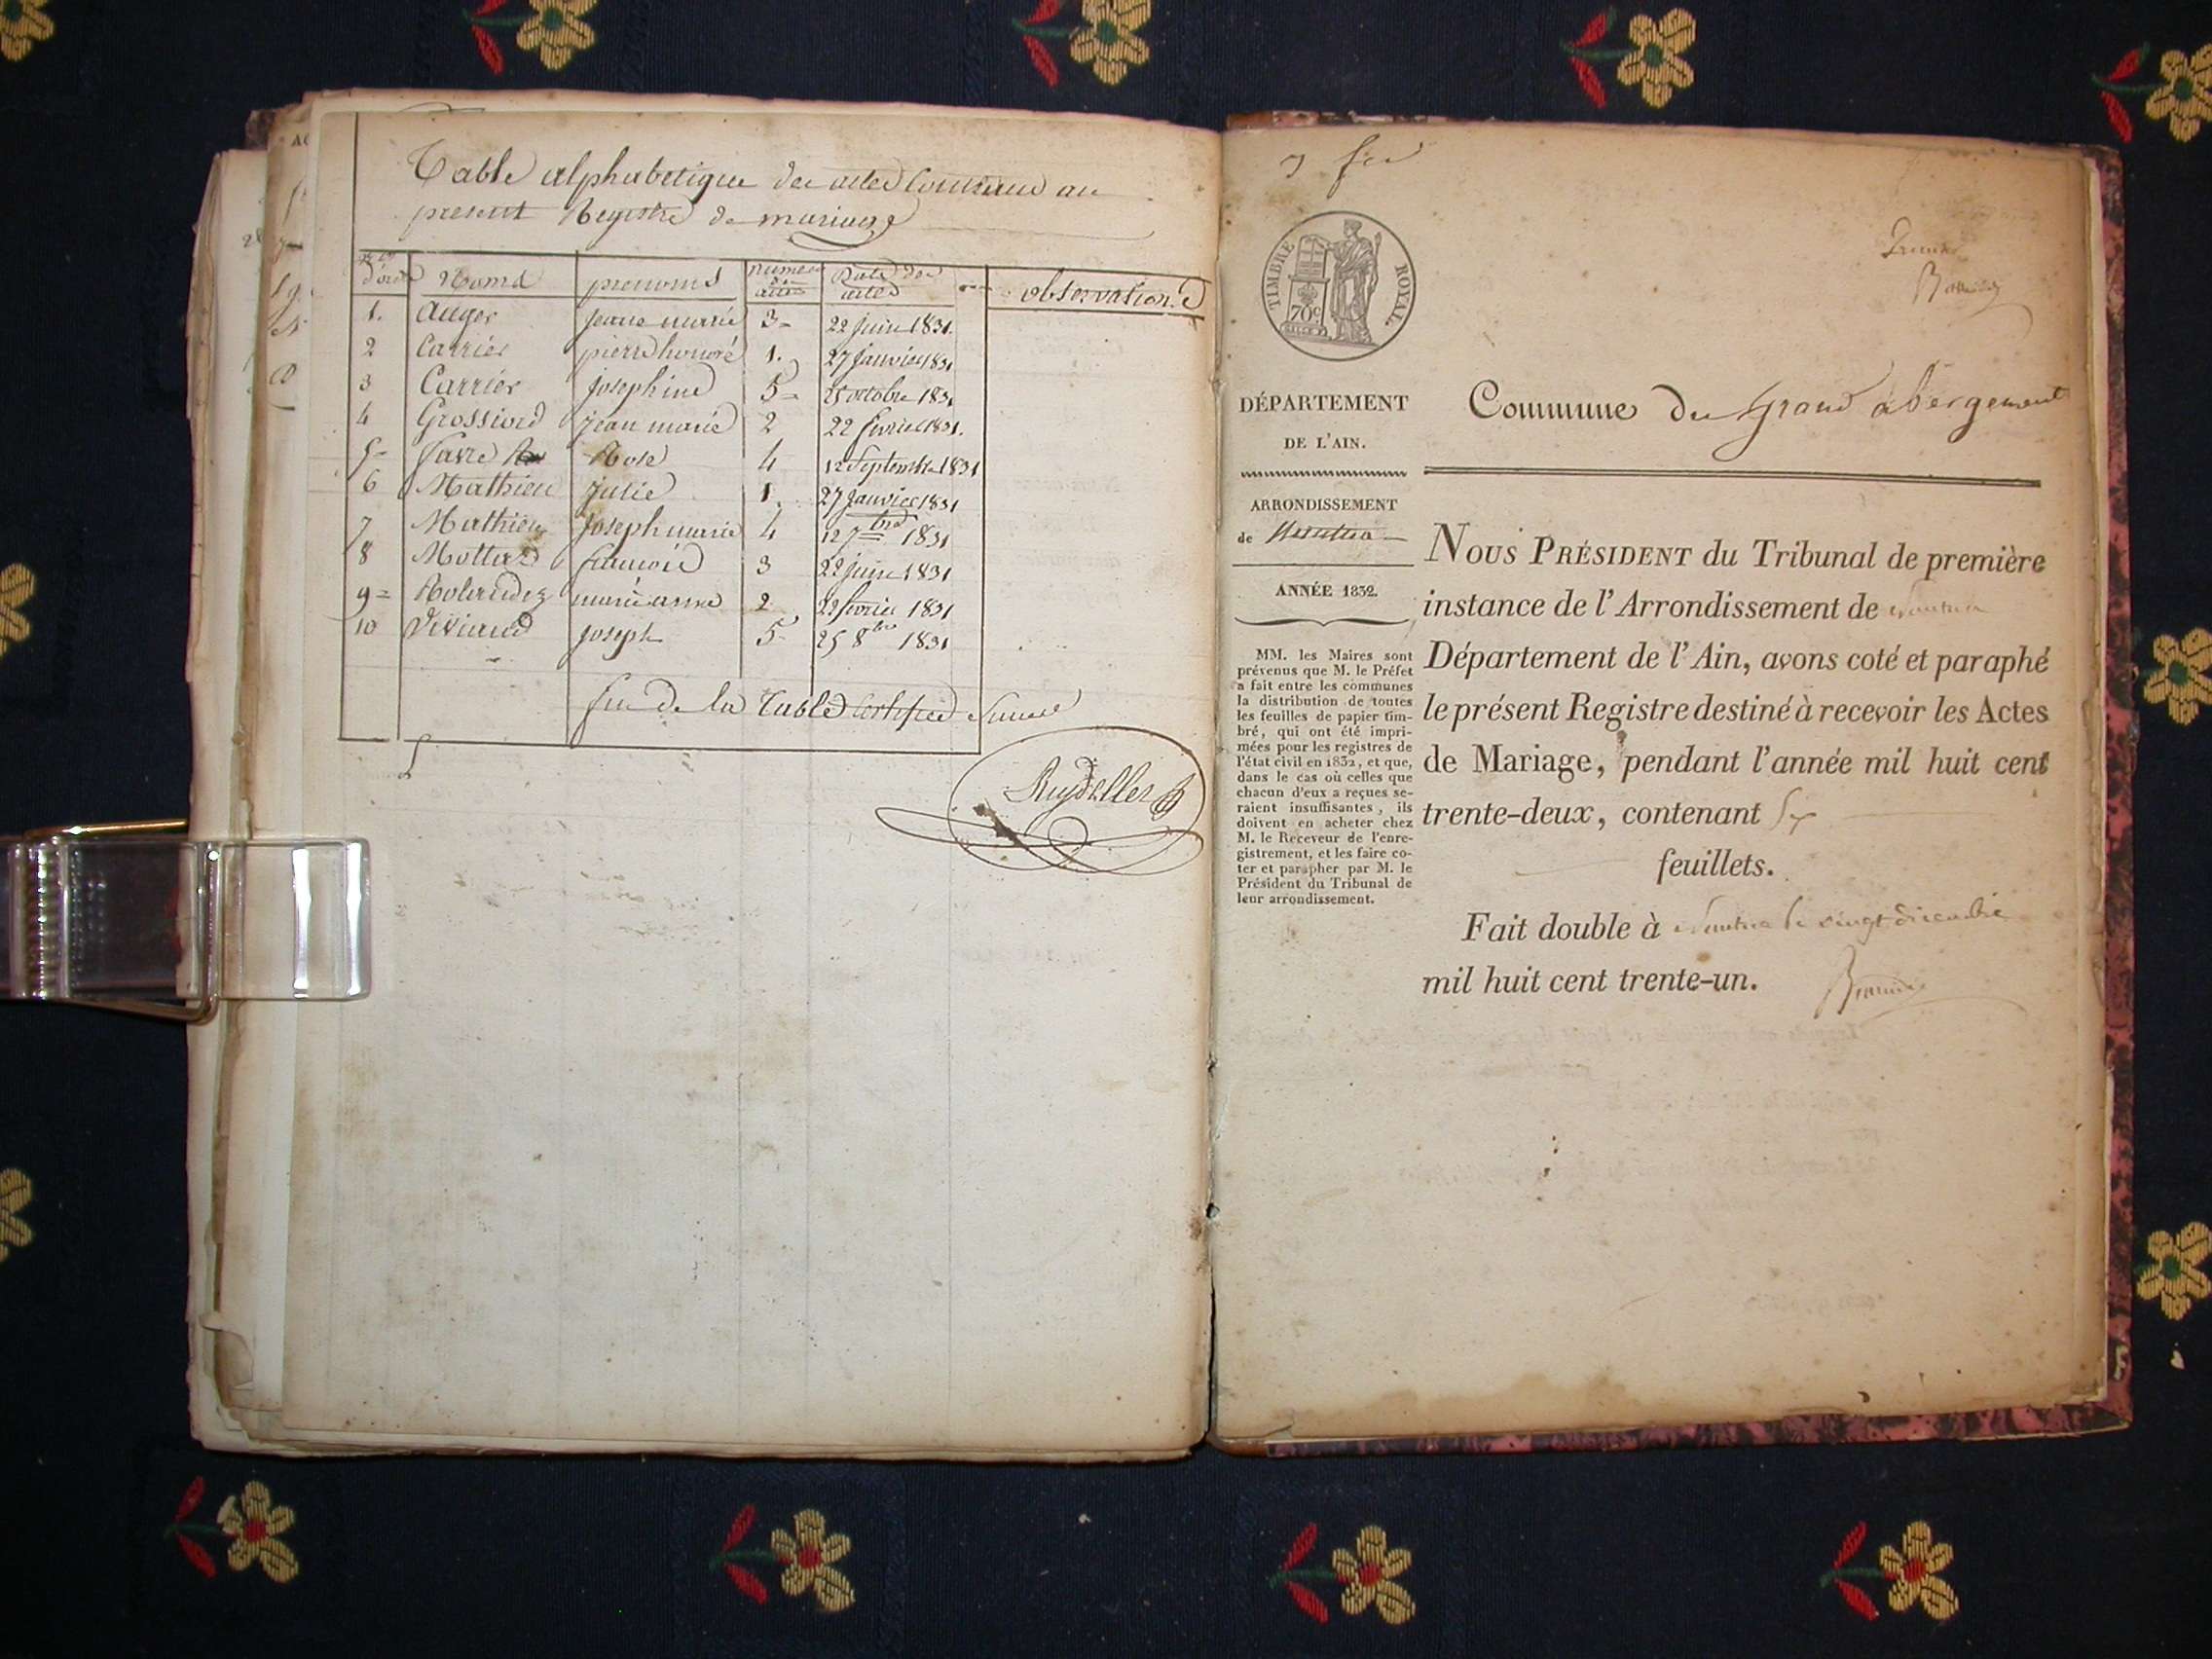 Table alphabetique des actes contenus au
present Registre de mariage
Nos d'ordre Noms prenoms numero des actes Date des actes observations
1. Auger jeane marie 3 22 juin 1831.
2 Carrier pierre honoré 1. 27 janvier 1831
3 Carrier josephine 5 25 octobre 1831
4 Grossiord jean marie 2 22 fevrier 1831.
5 favre Rose 4 12 Septembre 1831
6 Mathieu julie 1. 27 janvier 1831
7 Mathieu joseph marie 4 12 7bre 1831
8 Mottard francois 3 22 juin 1831
9 marie anne 2 22 fevrier 1831
10 Viviand joseph 5 25 8bre 1831
fin de la Table Certifiée
TIMBRE ROYAL
70c
Commune du Grand abergement
DÉPARTEMENT
DE L'AIN.
ARRONDISSEMENT
de Nantua
ANNÉE 1832.
MM. les Maires sont
prévenus que M. le Préfet
a fait entre les communes
la distribution de toutes
les feuilles de papier tim-
bré, qui ont été impri-
mées pour les registres de
l'état civil en 1832, et que,
dans le cas où celles que
chacun d'eux a reçues se-
raient insuffisantes, ils
doivent en acheter chez
M. le Receveur de l'enre-
gistrement, et les faire co-
ter et parapher par M. le
Président du Tribunal de
leur arrondissement.
NOUS PRÉSIDENT du Tribunal de première
instance de l'Arrondissement de Nantua
Département de l'Ain, avons coté et paraphé
le présent Registre destiné à recevoir les Actes
de Mariage, pendant l'année mil huit cent
trente-deux, contenant Six
feuillets.
Fait double à Nantua le vingt décembre
mil huit cent trente-un.